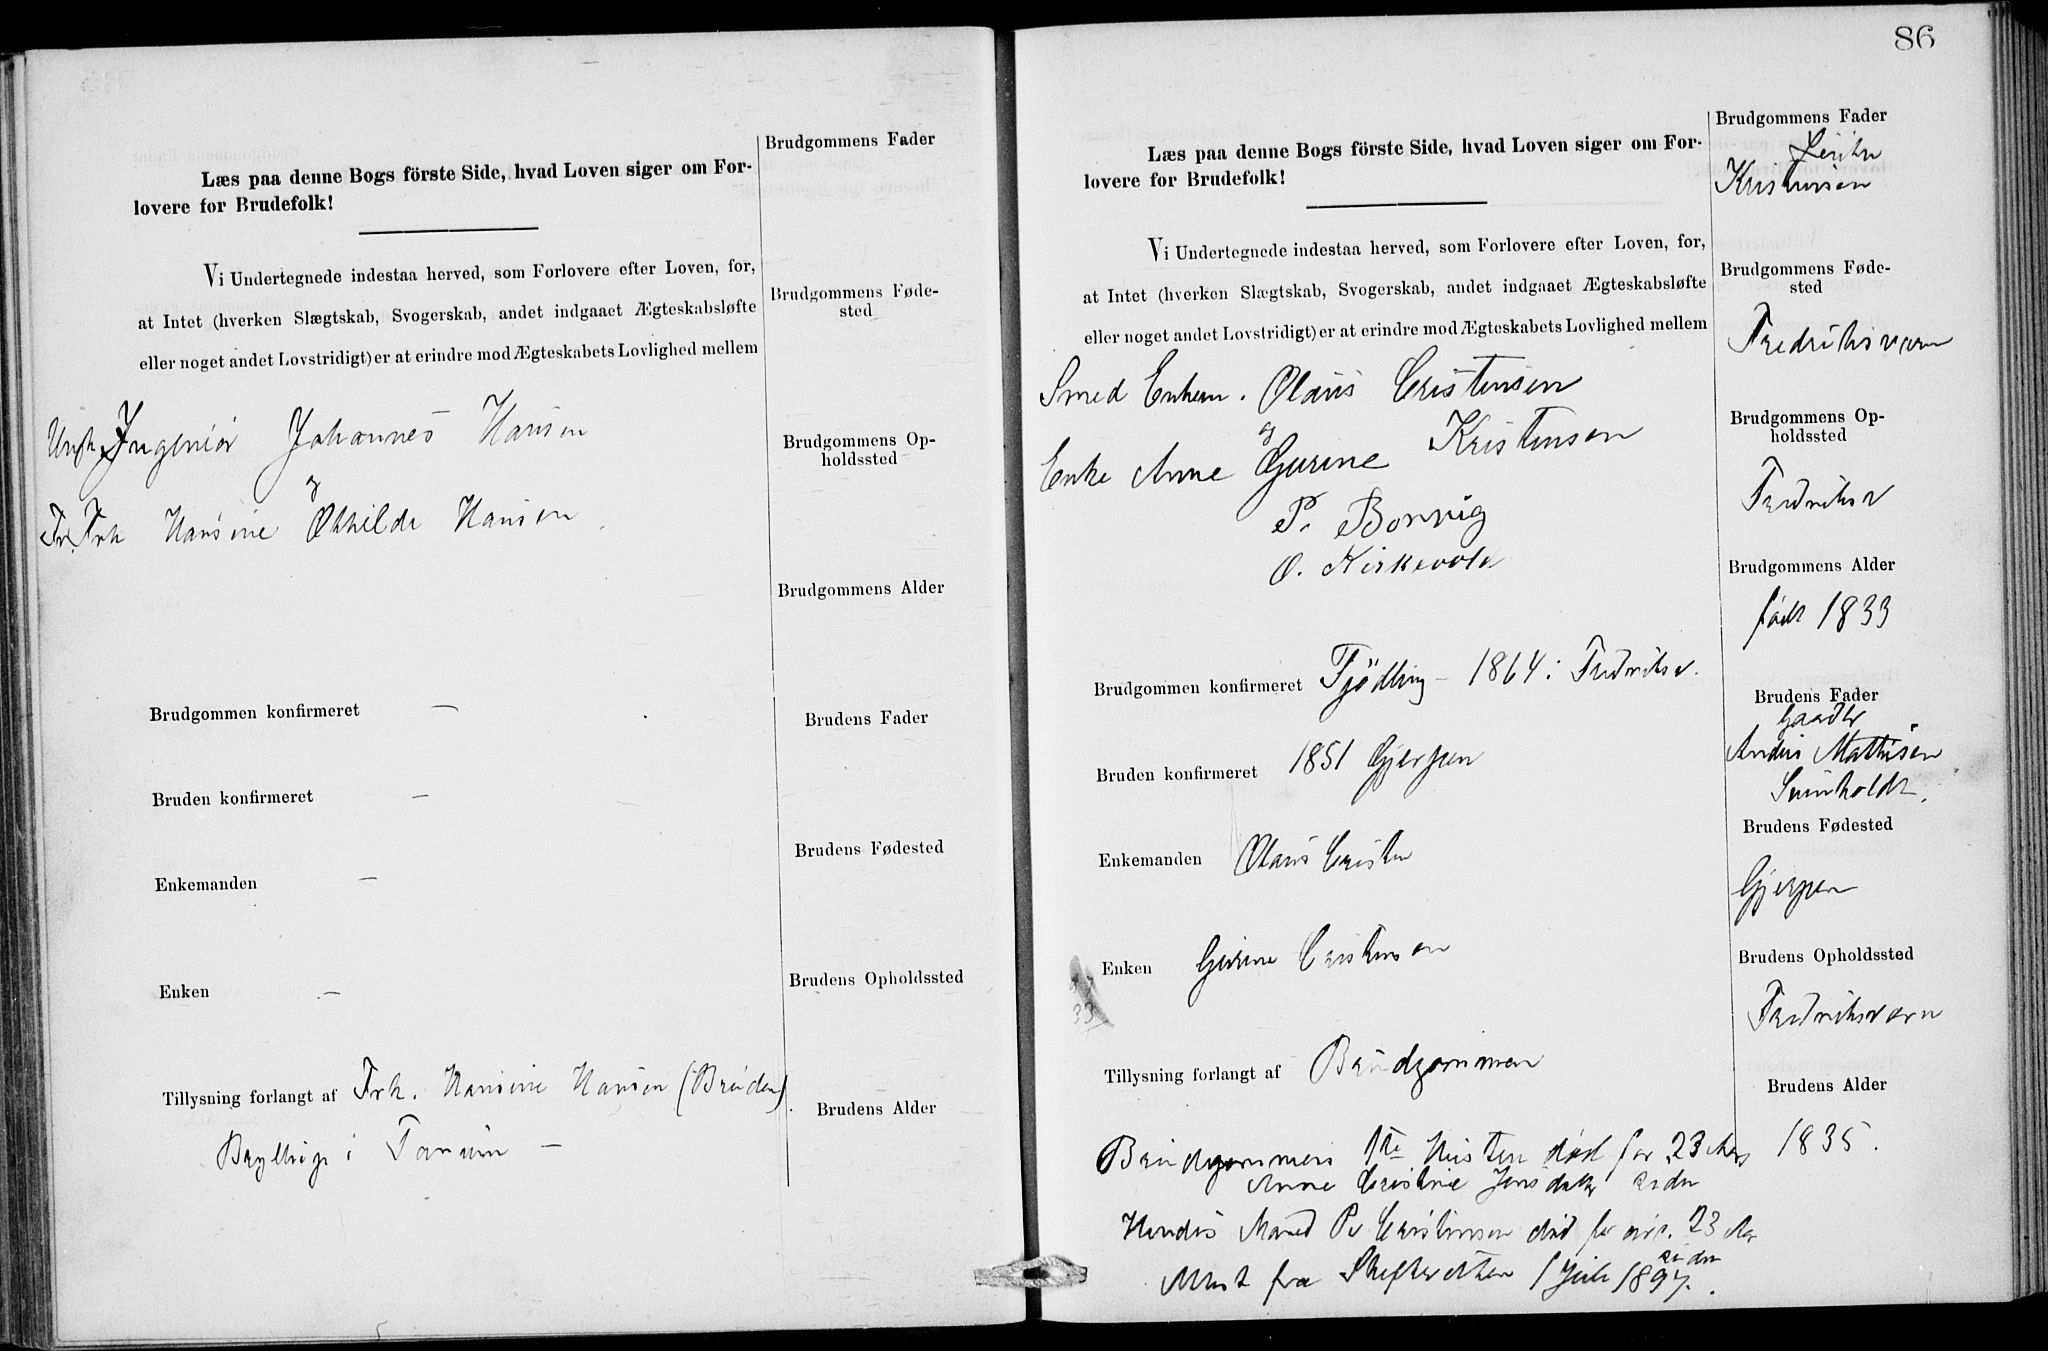 Læs paa denne Bogs förste Side, hvad Loven siger om For-
lovere for Brudefolk!
Vi Undertegnede indestaa herved, som Forlovere efter Loven, for,
at Intet (hverken Slægtskab, Svogerskab, andet indgaaet Ægteskabsløfte
eller noget andet Lovstridigt) er at erindre mod Ægteskabets Lovlighed mellem
Ungk. Ingeniør Johannes Hansen
og
Fr. Frk Hansine Othilde Hansen
Brudgommen konfirmeret —
Bruden konfirmeret —
Enkemanden —
Enken —
Tillysning forlangt af Frk. Hansine Hansen (Bruden).
Bryllup i Tanum —
Brudgommens Fader
Brudgommens Føde-
sted
Brudgommens Op-
holdssted
Brudgommens Alder
Brudens Fader
Brudens Fødested
Brudens Opholdssted
Brudens Alder
86
Læs paa denne Bogs förste Side, hvad Loven siger om For-
lovere for Brudefolk!
Vi Undertegnede indestaa herved, som Forlovere efter Loven, for,
at Intet (hverken Slægtskab, Svogerskab, andet indgaaet Ægteskabsløfte
eller noget andet Lovstridigt) er at erindre mod Ægteskabets Lovlighed mellem
Smed Enkem. Olaus Cristensen
og
Enke Anne Gurine Kristensen
P. Borvig
O. Kirkevold
Brudgommen konfirmeret Tjødling — 1864 i Fredriksv.
Bruden konfirmeret 1851 Gjerpen
Enkemanden Olaus Cristen
Enken Gurine Cristensen
33
Tillysning forlangt af Brudgommen
Brudgommens 1ste Hustru død for 23 Aar
Anne Cristine Jensdatter siden
Hendes Mand P. Cristensen død for circ. 23 Aar
siden
Attest fra Skifteretten 1 Juli 1897.
Brudgommens Fader
Kristensen
Brudgommens Føde-
sted
Fredriksværn
Brudgommens Op-
holdssted
Fredriksv
Brudgommens Alder
født 1833
Brudens Fader
Gaardbr
Anders Mathisen
Brudens Fødested
Gjerpen
Brudens Opholdssted
Fredriksværn
Brudens Alder
1835.